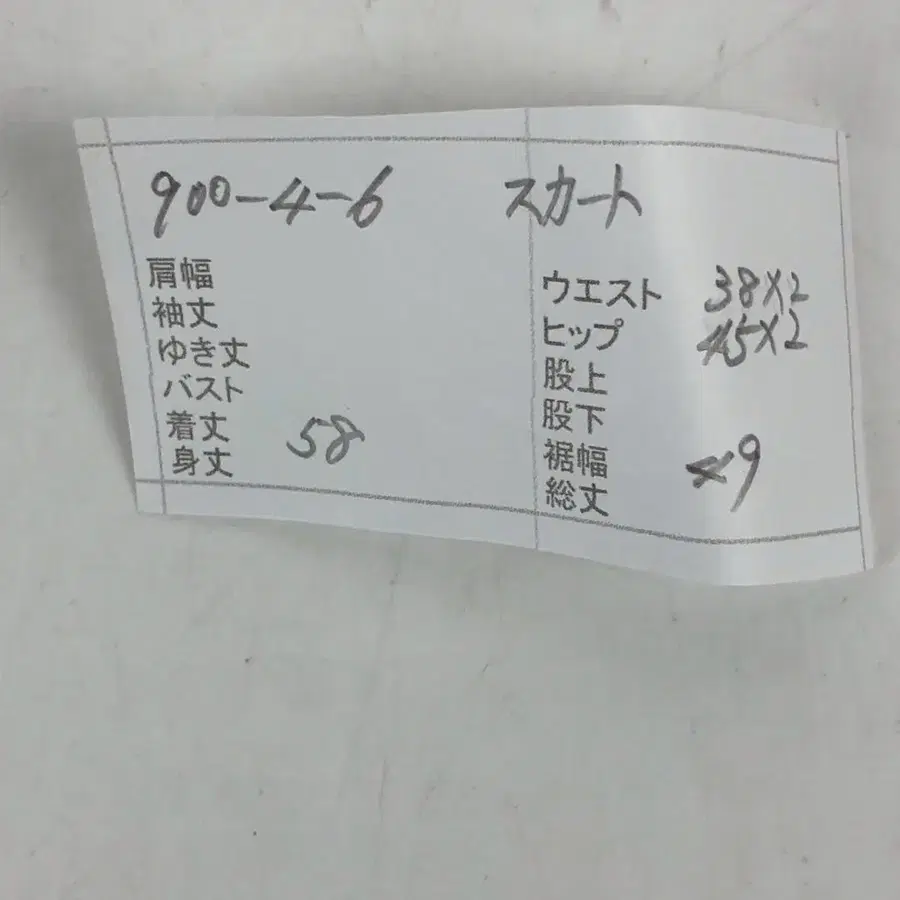 900-4-6 スカート
肩幅
袖丈
ゆき丈
バスト
着丈
身丈 58
ウエスト 38×2
ヒップ 45×2
股上
股下
裾幅 49
総丈